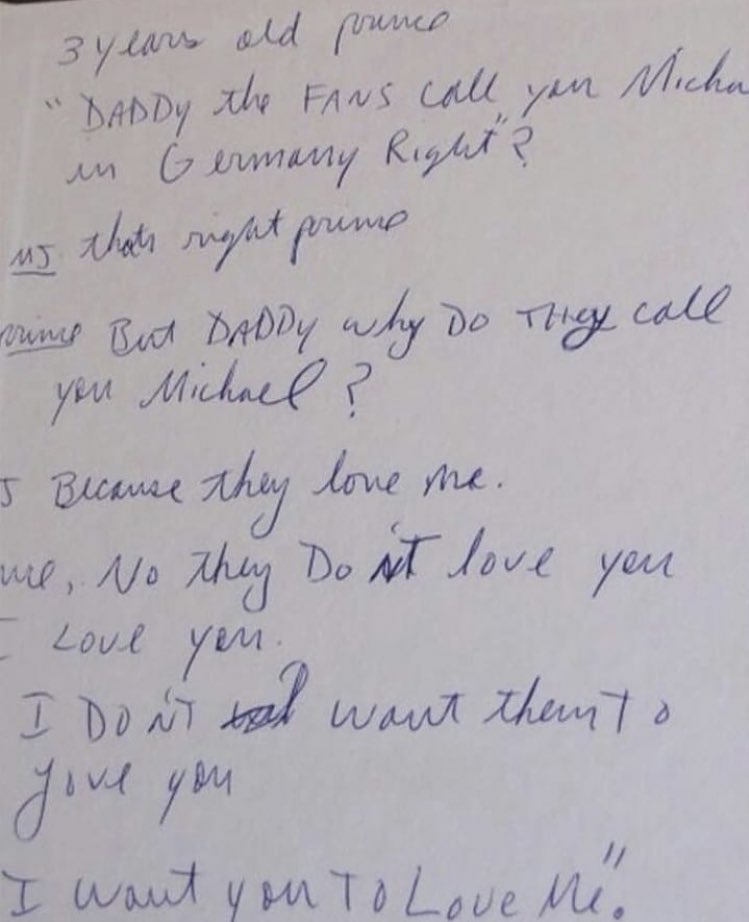 3 years old prince
"DADDY the FANS call you Micha
in Germany Right"?
MJ thats right prince
prince But DADDY why Do They call
you Michael?
J Because they love me.
nce, No they Don't love you
I Love you.
I DON'T want them To
love you
I want you To Love Me".